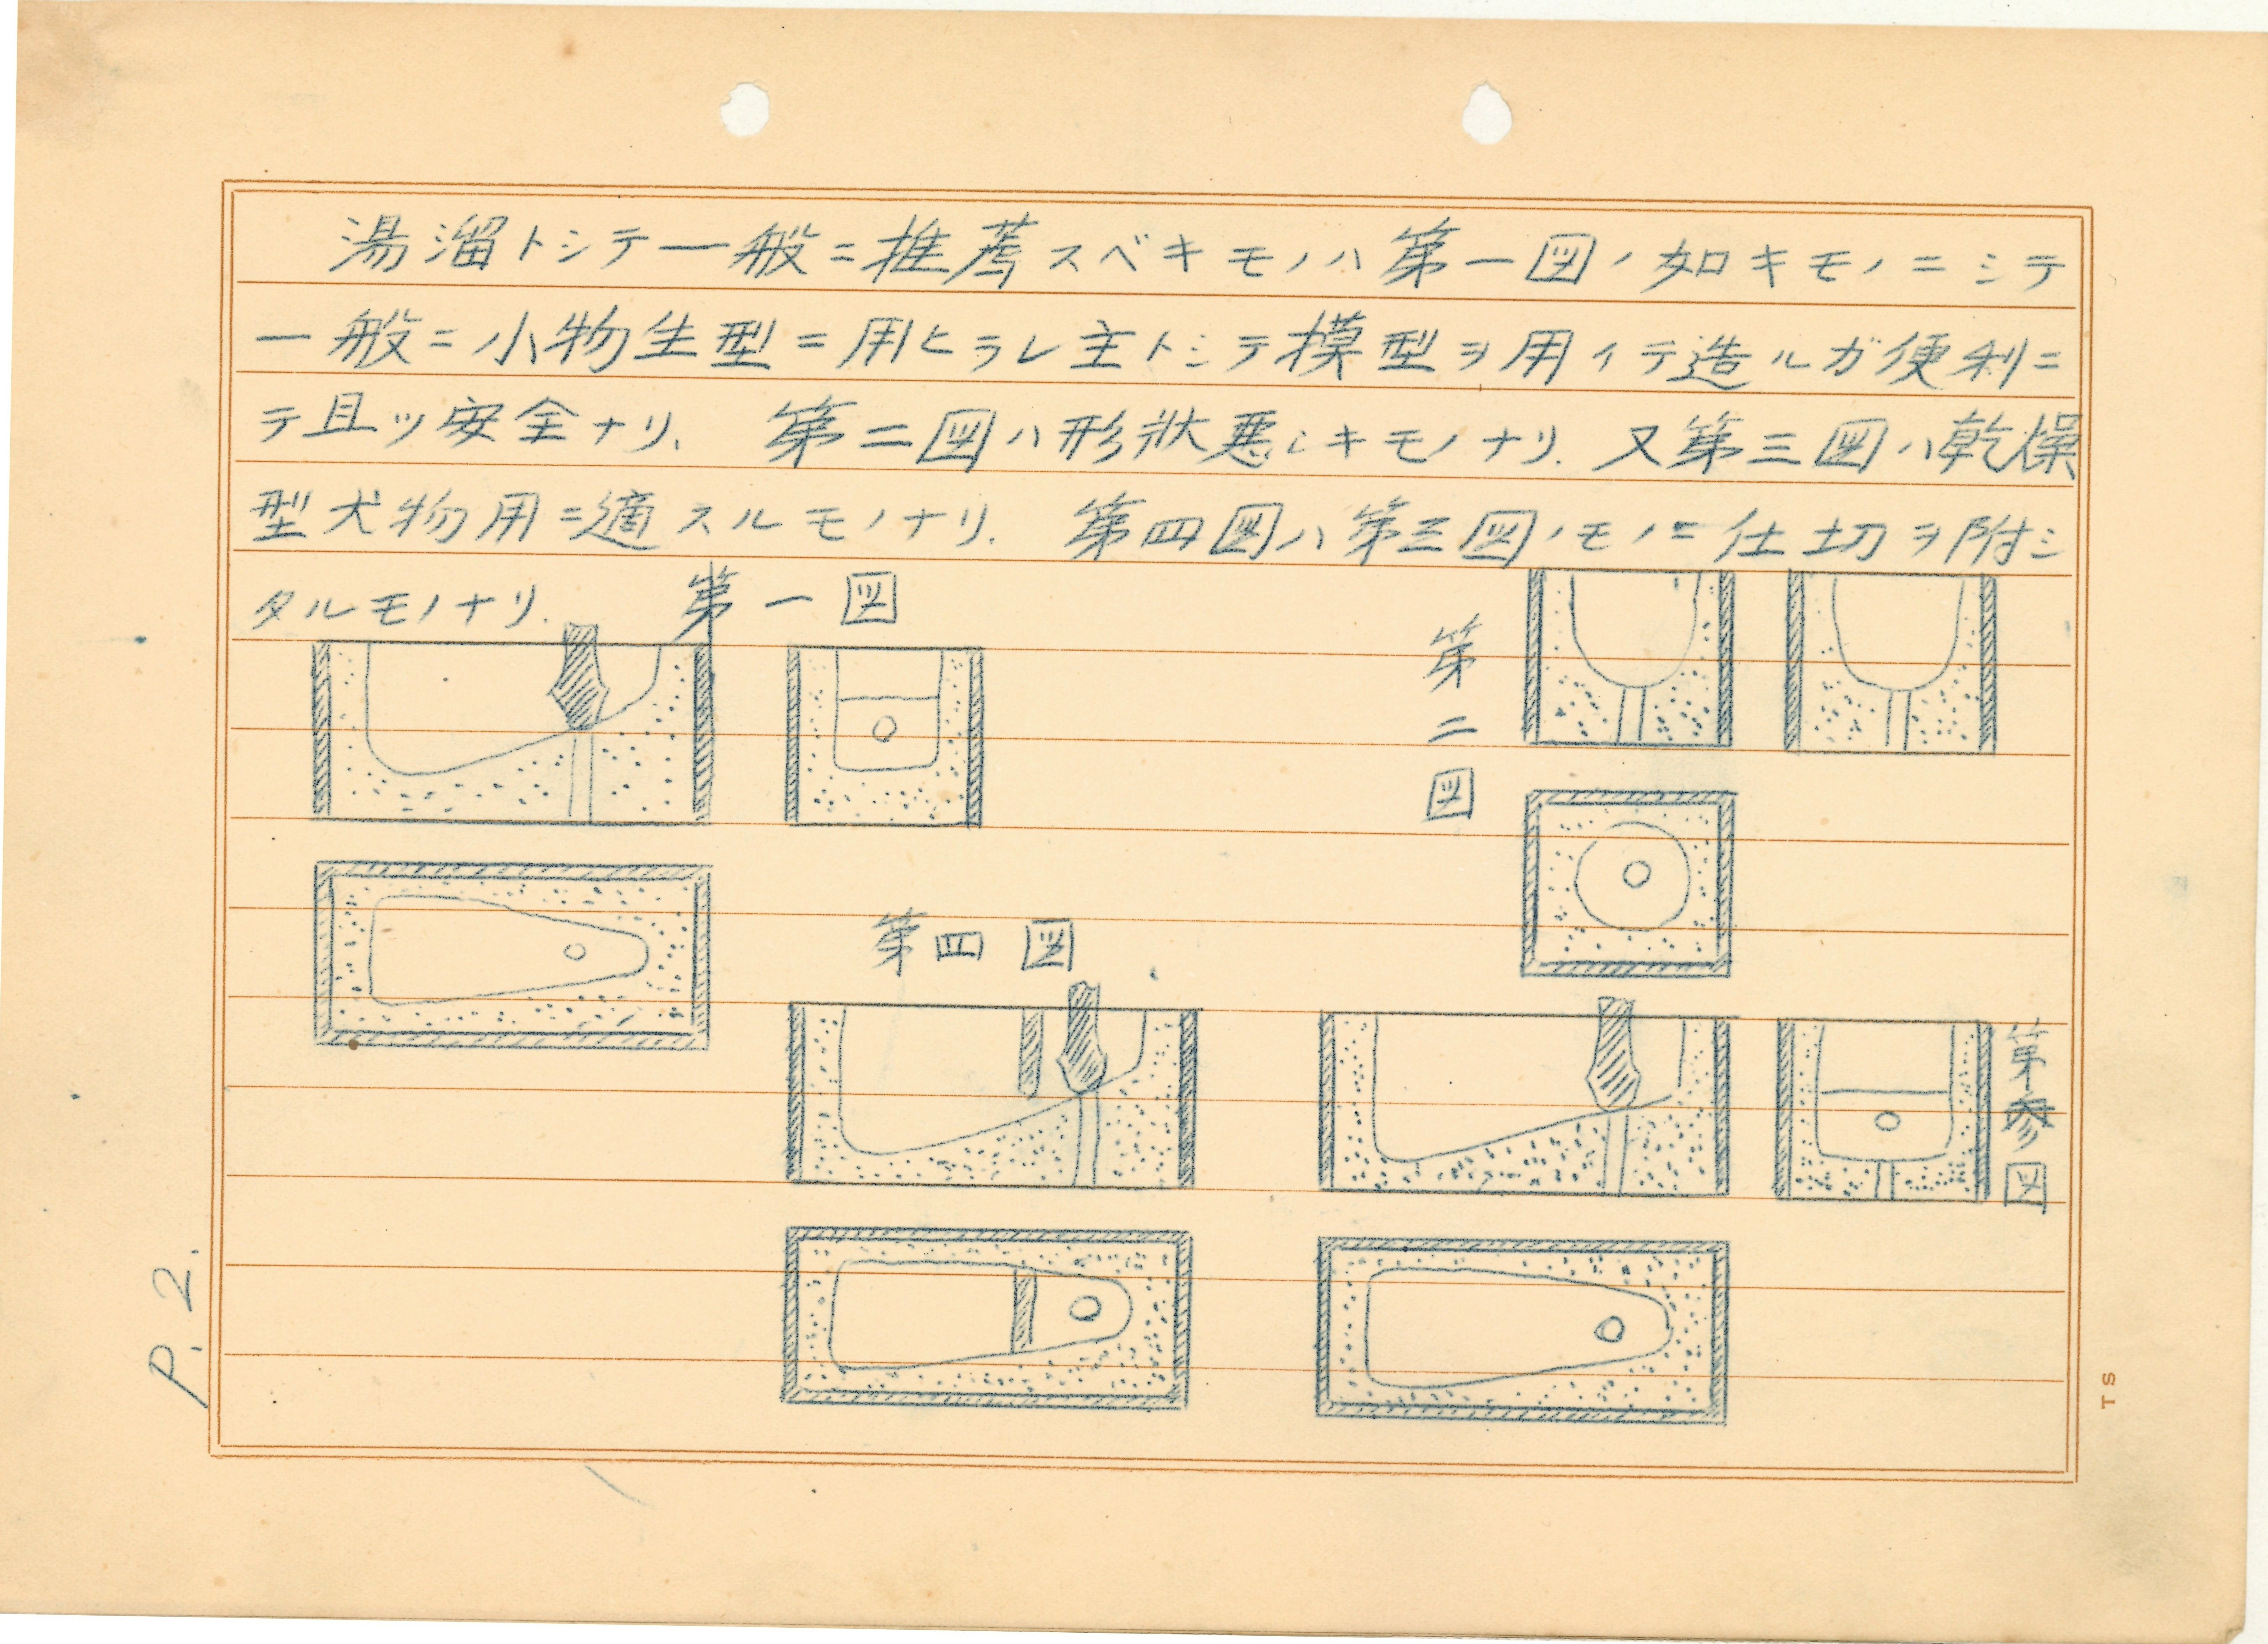 湯溜トシテ一般ニ推薦スベキモノハ第一図ノ如キモノニシテ
一般ニ小物生型ニ用ヒラレ主トシテ模型ヲ用イテ造ルガ便利ニ
テ且ツ安全ナリ、 第二図ハ形状悪シキモノナリ、又第三図ハ乾燥
型大物用ニ適スルモノナリ、 第四図ハ第三図ノモノニ仕切ヲ附シ
タルモノナリ、
第一図
第二図
第四図
第参図
P. 2.
TS